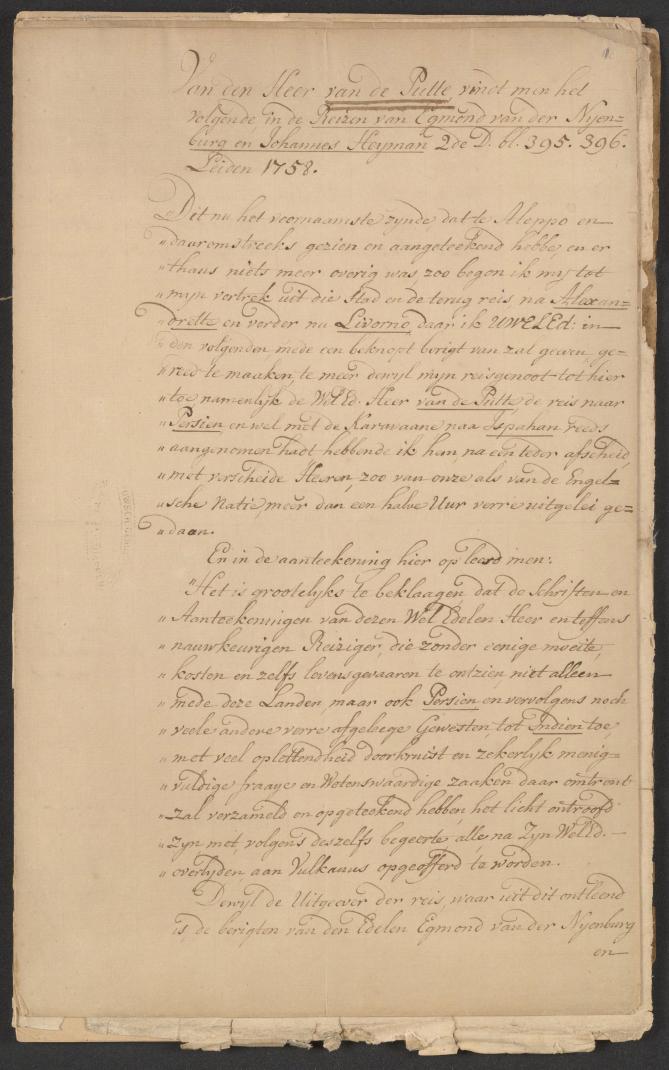 Van den Heer van de Putte, vindt men het
volgende in de Reizen van Egmond van der Nijen-
burg en Johannes Heyman 2de D. bl. 395. 396.
Leiden 1758.
Dit nu het voornaamste zynde, dat te Aleppo en
„ daaromstreeks gezien en aangeteekend hebbe, en er
„ thans niets meer overig was, zoo begon ik mij tot
„ mijn vertrek uit die Stad en de terug reis na Alexan-
„ drette en verder na Livorno, daar ik UWELEd: in
„ den volgenden mede een beknopt berigt van zal geeven, ge-
„ reed te maaken, te meer dewyl mijn reisgenoot tot hier
„ toe namenlijk de WelEd. Heer van de Putte, de reis naar
„ Persien en wel met de Karavaane naa Ispahan reeds
„ aangenomen hadt hebbende ik hem, na een teder afscheid,
„ met verscheide Heeren, zoo van onze als van de Engel-
„ sche Natie, meer dan een halve Uur verre uitgelei ge-
„ daan.
En in de aanteekening hier op leest men:
„ Het is grootelijks te beklaagen dat de Schriften en
„ Aanteekeningen van dezen Wel Edelen Heer en teffens
„ nauwkeurigen Reiziger, die zonder eenige moeite,
„ kosten en zelfs levensgevaaren te ontzien, niet alleen
„ mede deze Landen, maar ook Persien en vervolgens noch
„ veele andere verre afgelege Gewesten, tot Indien toe,
„ met veel oplettendheid doorkruist en zekerlijk menig-
„ vuldige fraaye en Wetenswaardige zaaken daar omtrent
„ zal verzameld en opgeteekend hebben het licht ontroofd
„ zyn, met, volgens deszelfs begeerte, alle na Zyn WelEd.
„ overlyden aan Vulkanus opgeofferd te worden.
Dewyl de Uitgeever der reis, waar uit dit ontleend
is, de berigten van den Edelen Egmond van der Nyenburg
en